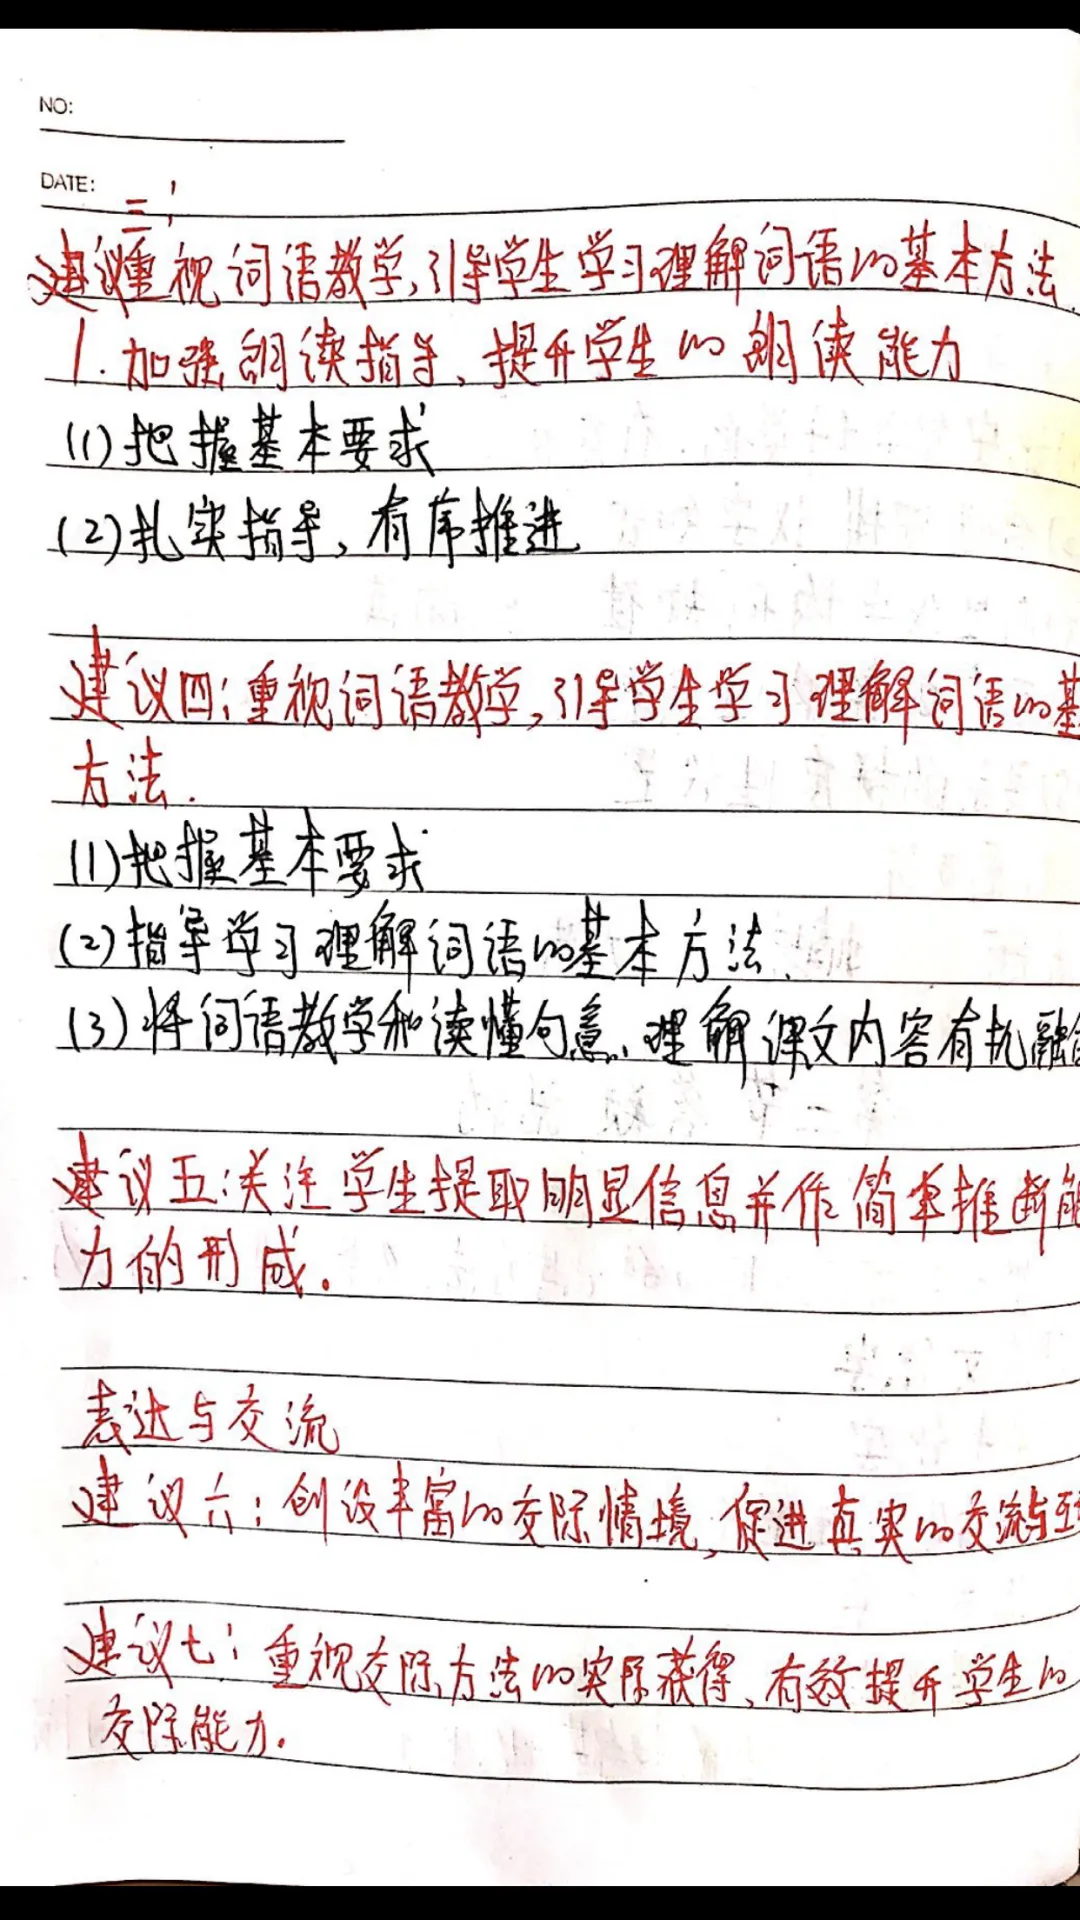 NO:
DATE:
三:
建议重视词语教学,引导学生学习理解词语的基本方法.
1.加强朗读指导、提升学生的朗读能力
(1)把握基本要求
(2)扎实指导,有序推进
建议四:重视词语教学,引导学生学习理解词语的基
方法.
(1)把握基本要求
(2)指导学习理解词语的基本方法.
(3)将词语教学和读懂句意、理解课文内容有机融合
建议五:关注学生提取明显信息并作简单推断能
力的形成。
表达与交流
建议六:创设丰富的交际情境,促进真实的交流与互
建议七:重视交际方法的实际获得、有效提升学生的
交际能力.